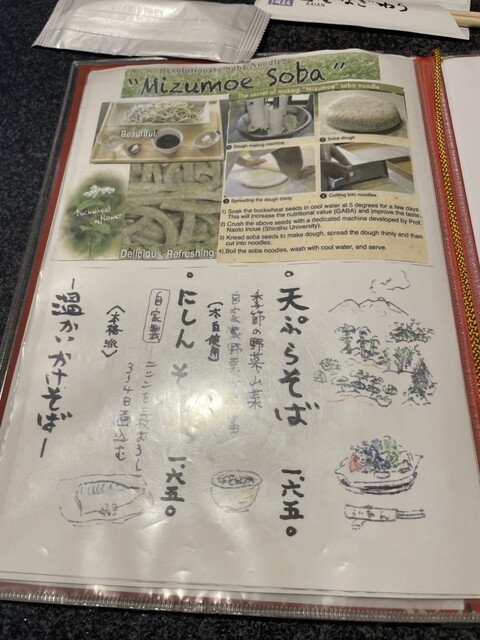 Revolutionary Soba Noodle
"Mizumoe Soba"
The secret of making "Mizumoe" soba noodle
Beautiful
① Dough making machine
② Soba dough
③ Spreading the dough thinly
④ Cutting into noodles
Buckwheat
flower
Delicious, Refreshing
1) Soak the buckwheat seeds in cool water at 5 degrees for a few days.
This will increase the nutritional value (GABA) and improve the taste.
2) Crush the above seeds with a dedicated machine developed by Prof.
Naoto Inoue (Shinshu University).
3) Knead soba seeds to make dough, spread the dough thinly and then
cut into noodles.
4) Boil the soba noodles, wash with cool water, and serve.
・天ぷらそば 一六五〇
季節の野菜山菜
自家農野菜
・にしんそば 一六五〇
自家製
ニシンを三枚おろし
3〜4日煮込む
〈本格派〉
ー温かいかけそばー